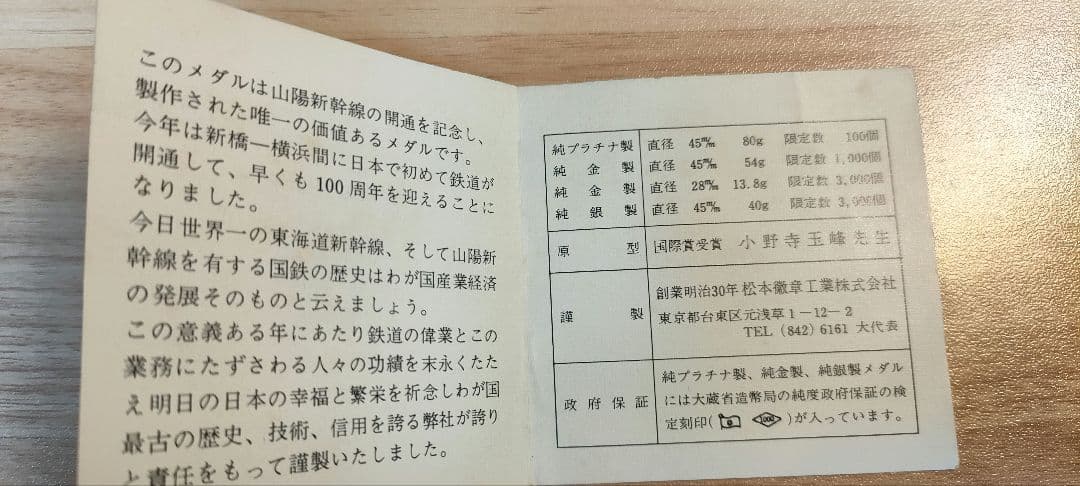 このメダルは山陽新幹線の開通を記念し、
製作された唯一の価値あるメダルです。
今年は新橋一横浜間に日本で初めて鉄道が
開通して、早くも100周年を迎えることに
なりました。
今日世界一の東海道新幹線、そして山陽新
幹線を有する国鉄の歴史はわが国産業経済
の発展そのものと云えましょう。
この意義ある年にあたり鉄道の偉業とこの
業務にたずさわる人々の功績を末永くたた
え明日の日本の幸福と繁栄を祈念しわが国
最古の歴史、技術、信用を誇る弊社が誇り
と責任をもって謹製いたしました。
純プラチナ製 直径 45m/m 80g 限定数 100個
純金製 直径 45m/m 54g 限定数 1,000個
純金製 直径 28m/m 13.8g 限定数 3,000個
純銀製 直径 45m/m 40g 限定数 3,000個
原型 国際賞受賞 小野寺玉峰先生
謹製 創業明治30年 松本徽章工業株式会社
東京都台東区元浅草1-12-2
TEL (842) 6161 大代表
政府保証 純プラチナ製、純金製、純銀製メダル
には大蔵省造幣局の純度政府保証の検
定刻印( 1000 )が入っています。